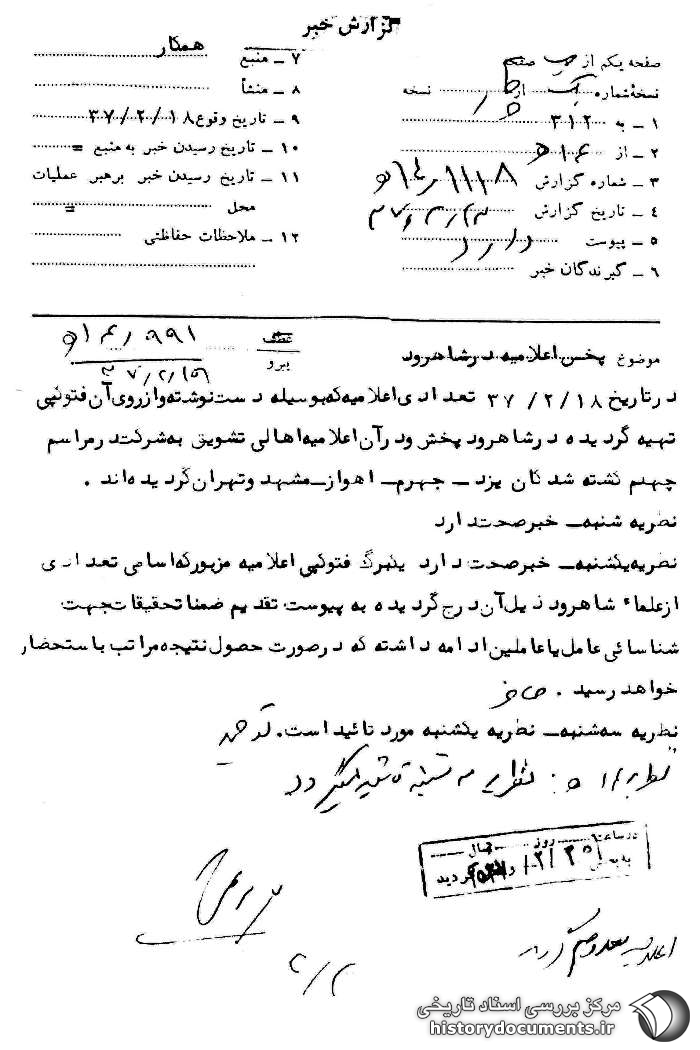 گزارش خبر
صفحه یکم از صفحه
نسخهٔ شماره یک از نسخه
۱ - به ۳۱۲
۲ - از ۱۴ ه
۳ - شماره گزارش ۱۱۱۸ / ۱۴ ه
۴ - تاریخ گزارش
۵ - پیوست دارد
۶ - گیرندگان خبر
۷ - منبع همکار
۸ - منشأ
۹ - تاریخ وقوع ۳۷/۲/۱۸
۱۰ - تاریخ رسیدن خبر به منبع =
۱۱ - تاریخ رسیدن خبر برهبر عملیات
محل =
۱۲ - ملاحظات حفاظتی
موضوع پخش اعلامیه در شاهرود
عطف
پیرو ۹۹۱ / ۱۴ ه
درتاریخ ۳۷/۲/۱۸ تعدادی اعلامیه که بوسیله دست نوشته و از روی آن فتوکپی
تهیه گردیده در شاهرود پخش و در آن اعلامیه اهالی تشویق به شرکت در مراسم
چهلم کشته شدگان یزد - جهرم - اهواز - مشهد و تهران گردیده اند .
نظریه شنبه - خبر صحت دارد
نظریه یکشنبه - خبر صحت دارد یکبرگ فتوکپی اعلامیه مزبور که اسامی تعدادی
از علماء شاهرود ذیل آن درج گردیده به پیوست تقدیم ضمنا تحقیقات جهت
شناسائی عامل یا عاملین ادامه داشته که در صورت حصول نتیجه مراتب باستحضار
خواهد رسید .
نظریه سه شنبه - نظریه یکشنبه مورد تائید است.
نظریه ۱۴ ه : نظریه سه شنبه تائید میگردد
در ساعت روز سال
گردید
اعلامیه
مرکز بررسی اسناد تاریخی
historydocuments.ir